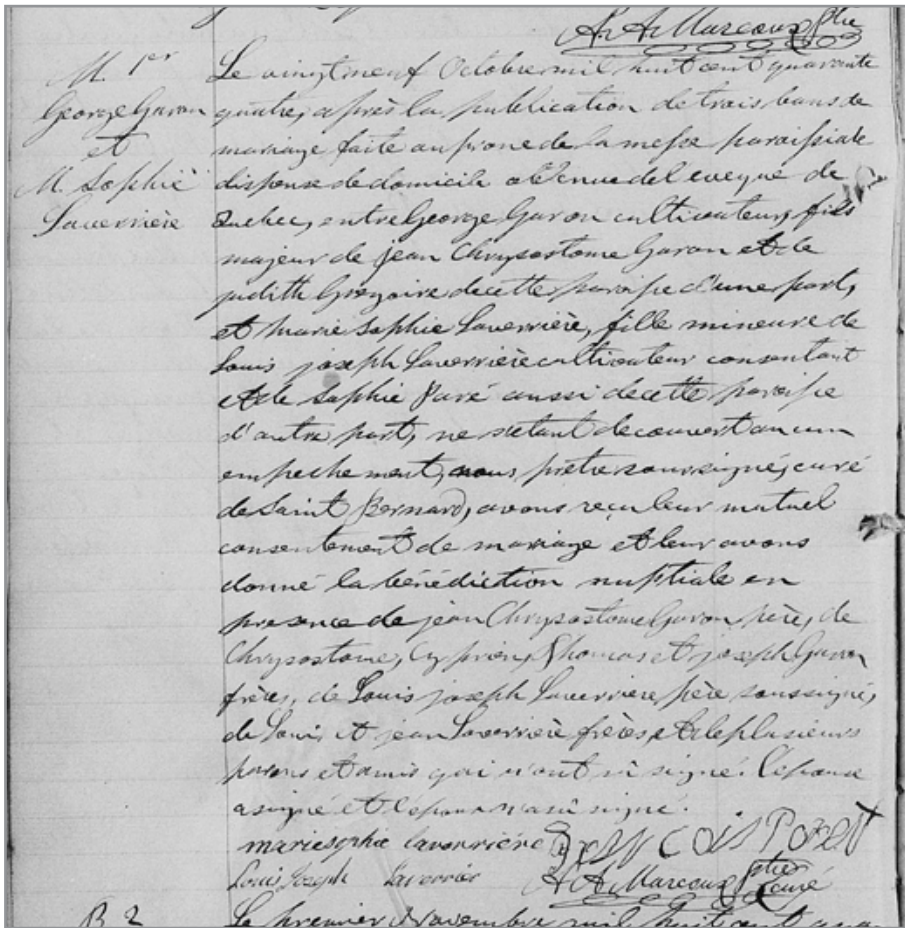 A. A. Marcoux Ptre
M. 1er
George Garon
et
M. Sophie
Laverrière
Le vingtneuf Octobre mil huit cent quarante
quatre, après la publication de trois bans de
mariage faite au prone de la messe paroissiale
dispense de domicile obtenue de l'eveque de
Quebec, entre George Garon cultivateur, fils
majeur de Jean Chrysostome Garon et de
judith Grégoire de cette paroisse d'une part,
et marie Sophie Laverrière, fille mineure de
Louis joseph Laverrière cultivateur consentant
et de Sophie Paré aussi de cette paroisse
d'autre part, ne s'etant decouvert aucun
empechement, nous prêtre soussigné, curé
de Saint Bernard, avons reçu leur mutuel
consentement de mariage et leur avons
donné la bénédiction nuptiale en
presence de jean Chrysostome Garon père, de
Chrysostome, Cyprien, Thomas et joseph Garon
frères, de Louis joseph Laverriere père soussigné,
de Louis et jean Laverrière frères, et de plusieurs
parens et amis qui n'ont sû signé. L'epouse
a signé et l'epoux n'a sû signé.
marie sophie laverrière
Louis Joseph Laverrier
A. A. Marcoux Ptre
curé
B 2
Le premier Novembre mil huit cent